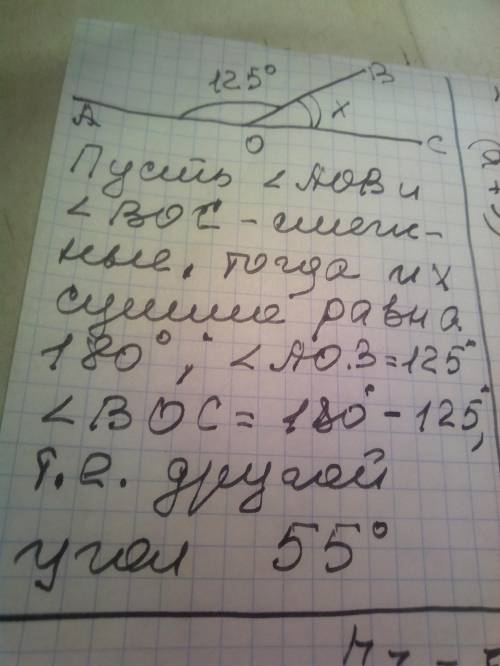 125°
B
A
O
x
C
Пусть ∠AOB и
∠BOC - смеж-
ные, тогда их
сумма равна
180°, ∠AOB = 125°
∠BOC = 180° - 125°,
т.е. другой
угол 55°